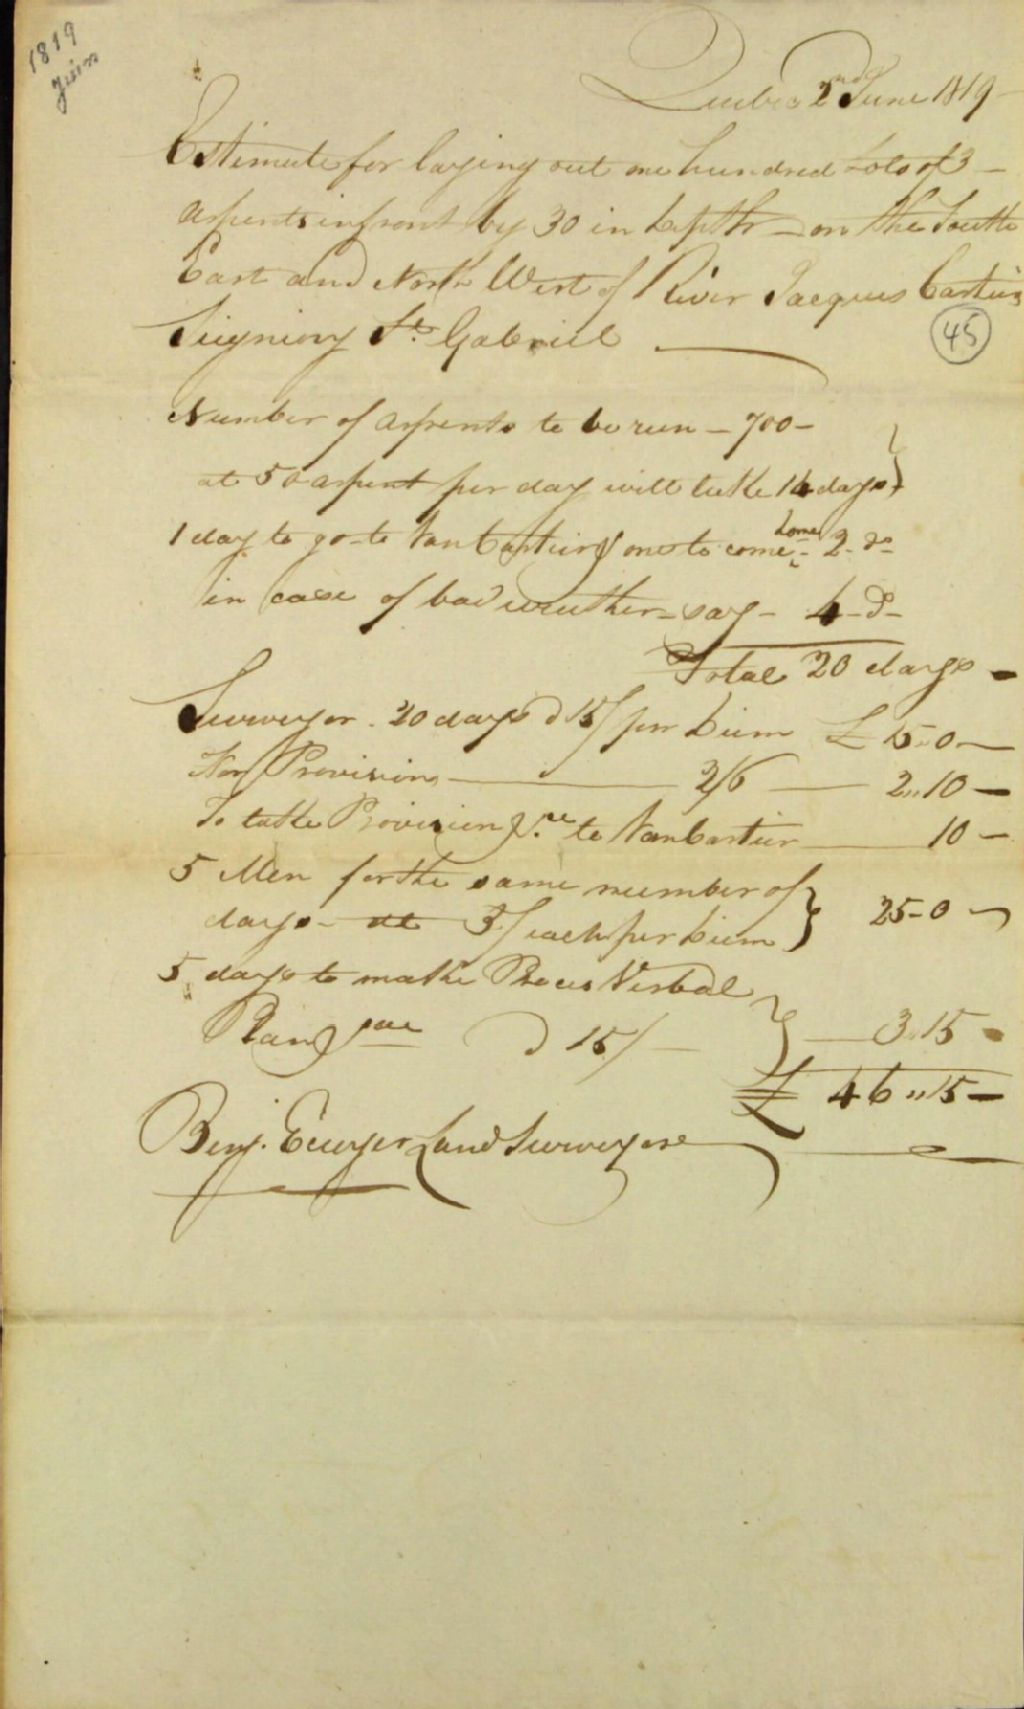 1819
Juin
Quebec 2nd June 1819 -
Estimate for laying out one hundred Lots of 3 -
arpents in front by 30 in depth - on the South
East and North West of River Jacques Cartier
Seigniory St. Gabriel
45
Number of arpents to be run - 700 -
at 50 arpent per day will take 14 days
1 day to go to Van Cartier & one to come home - 2 - do
in case of bad weather - say - 4 - do -
Total 20 days -
Surveyor 20 days @ 15/ per Diem £ 15 " 0 -
For Provision 2/6 2 " 10 -
To take Provision to Van Cartier 10 -
5 Men for the same number of
days - at 3/ each per Diem 25 - 0
5 days to make Proces Verbal
Plan @ 15/ - 3 " 15 -
£ 46 " 15 -
Benj. Ecuyer Land Surveyor